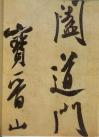 閣道門
寶晉山